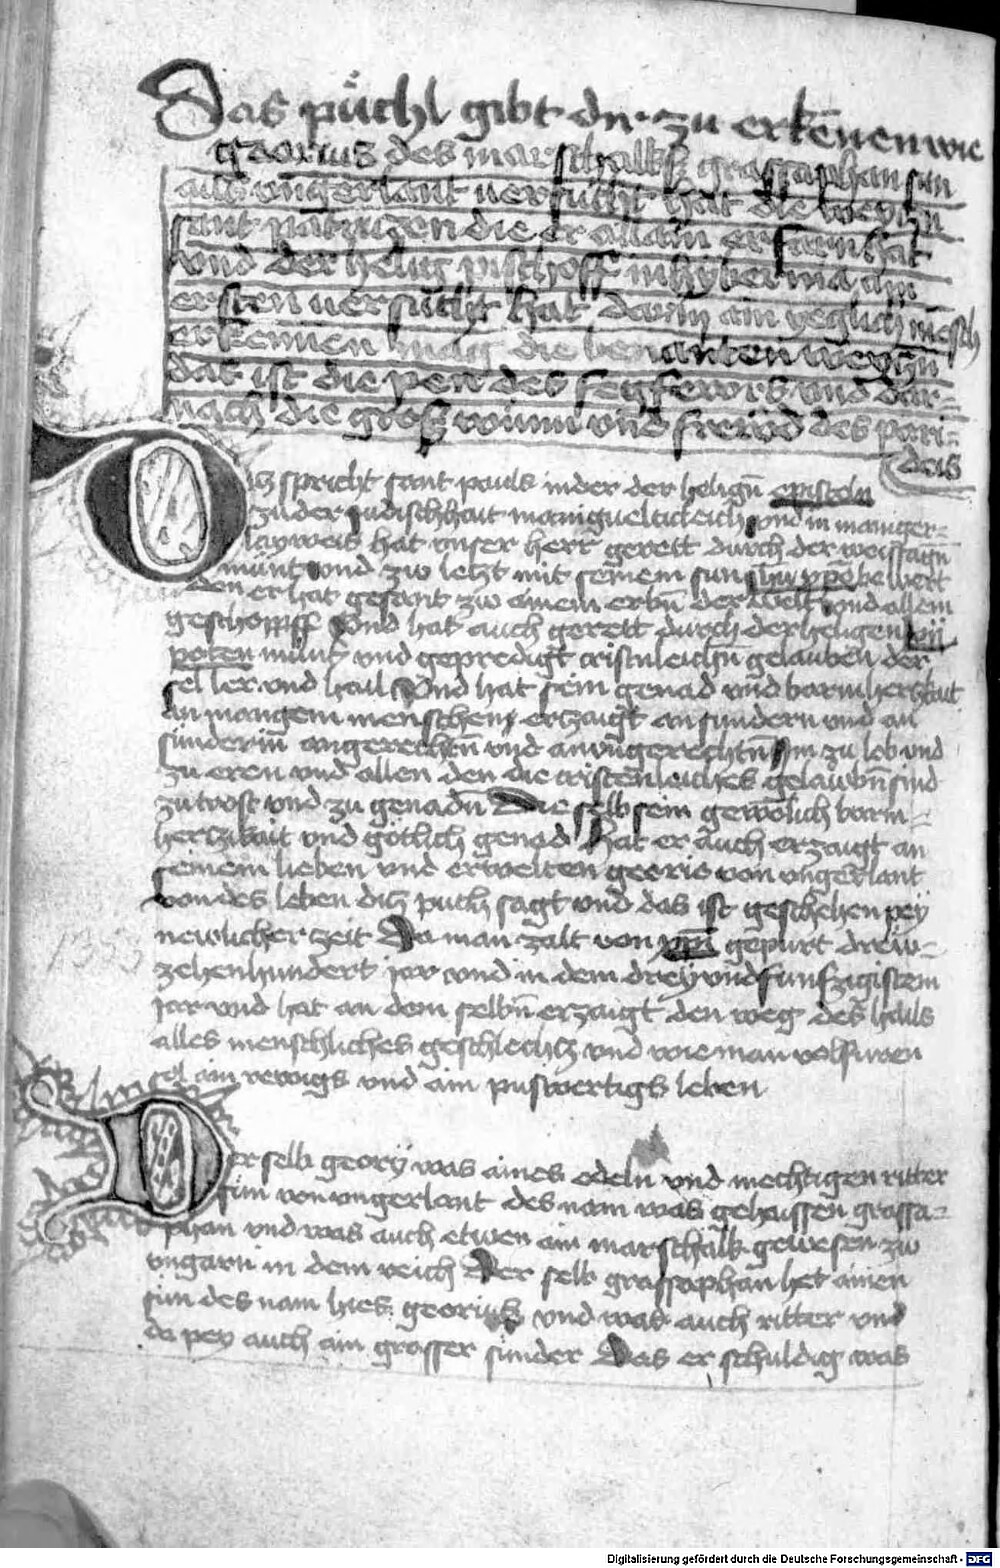 Das püchl gibt dir zu erkēnen wie
Georius des marschalks grassaphan sun
aus vngerlant versucht hat die weyczn
sant patrizen die er allain erfarn hat
vnd der heilig pischoff in hyberniā am
ersten versucht hat darin ain yeglich mēsch
erkennen mag die benanten weyczn
daz ist die pen des fegfewrs vnd dar-
nach die gross wunn vnd frewd des pari-
deis
Diz spricht sant pauls in der der heiligen episteln
zu der iudischhait manigueltichleich vnd in maniger-
lay weis hat vnser herr gerett durch der weissagn
munt vnd zw letzt mit seinem sun
den er hat gesant zw ainem erbn der welt vnd allem
geschopff Vnd hat auch gerett durch der heiligen xij
poten munt vnd gepredigt cristenleichn gelauben der
sel ler vnd hail Vnd hat sein genad vnd barmhertzikait
an mangem menschen erzaigt an sundern vnd an
sunderin an gerechten vnd an vngerechtn Im zu lob vnd
zu eren vnd allen den die cristenleiches gelaubn sind
zu trost vnd zu genadn Die selb sein gewonlich barm-
hertzikait vnd götlich genad hat er auch erzaigt an
seinem lieben vnd erwelten georio von vngerlant
von des leben diz puch sagt vnd das ist geschehen pey
newlicher zeit Da man zalt von xp̄i gepurt drew-
zehenhundert iar vnd in dem drey vnd funfzigistem
1353
iar vnd hat an dem selbn erzaigt den weg des hails
alles menschliches geschlechtz vnd wie man volfuren
sol ain rewigs vnd ain puswertigs leben
Der selb geory was aines edeln vnd mechtigen ritter
sun von vngerlant des nam was gehaissen grassa-
phan vnd was auch etwen ain marschalk gewesen zw
vngarn in dem reich Der selb grassaphan het ainen
sun des nam hies georius vnd was auch ritter vnd
da pey auch ain grosser sunder Das er schuldig was
Digitalisierung gefördert durch die Deutsche Forschungsgemeinschaft - DFG